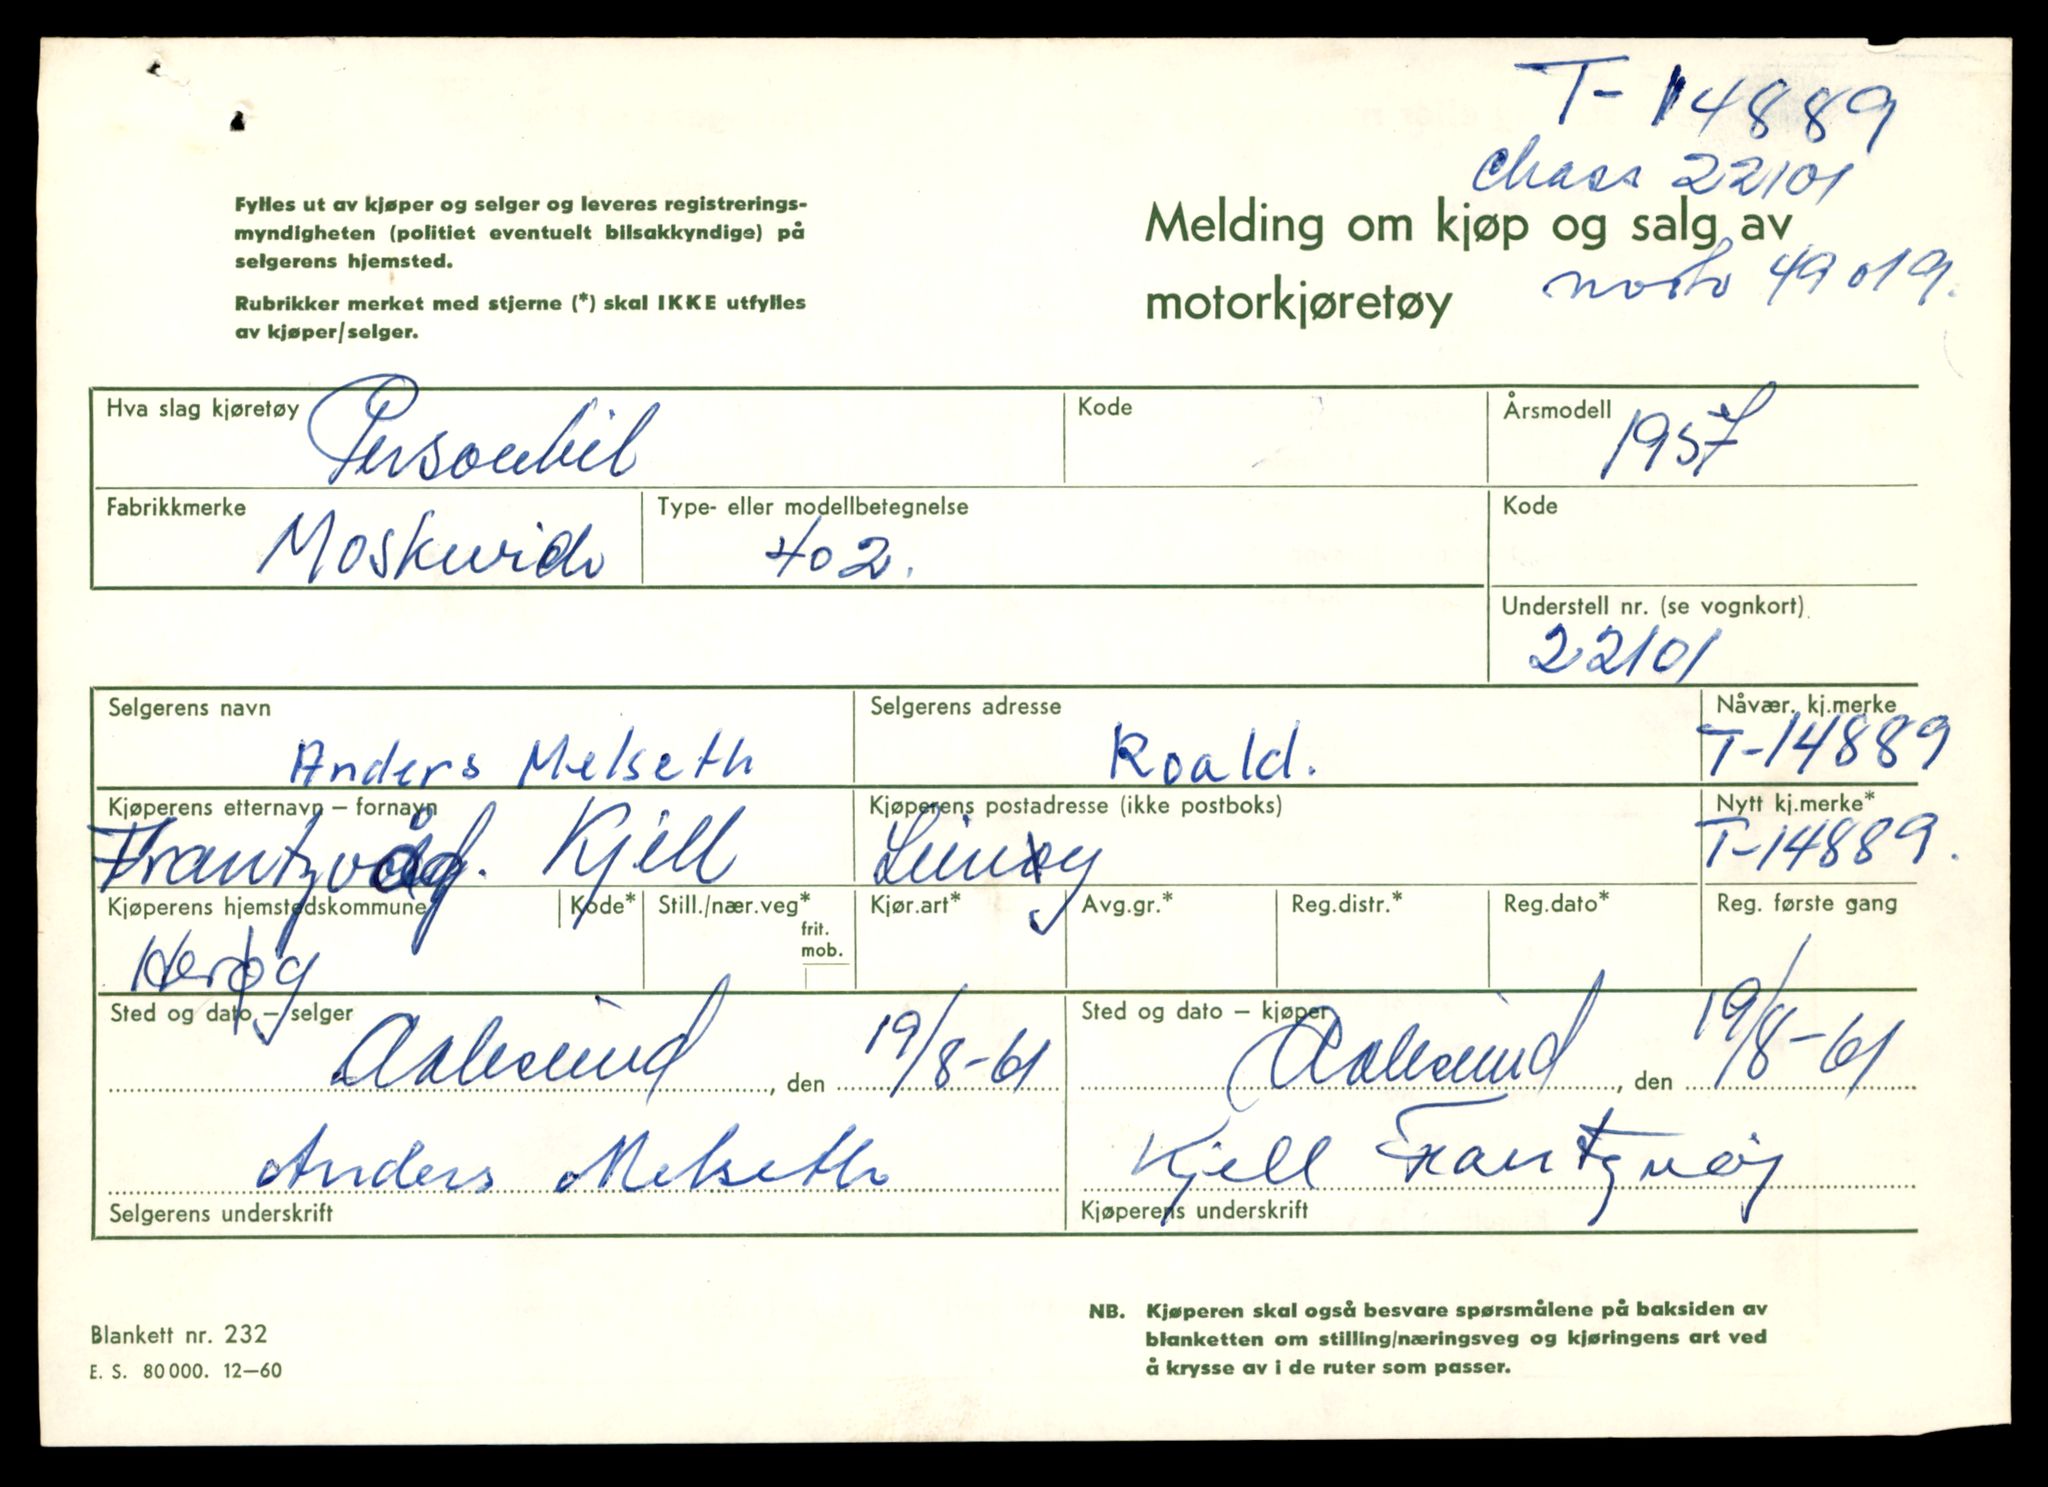 T-14889
Chass 22101
Fylles ut av kjøper og selger og leveres registrerings-
myndigheten (politiet eventuelt bilsakkyndige) på
selgerens hjemsted.
Rubrikker merket med stjerne (*) skal IKKE utfylles
av kjøper/selger.
Melding om kjøp og salg av
motorkjøretøy
49019.
Hva slag kjøretøy Personbil
Kode
Årsmodell 1957
Fabrikkmerke Moskvich
Type- eller modellbetegnelse 402.
Kode
Understell nr. (se vognkort)
22101
Selgerens navn
Anders Melseth
Selgerens adresse
Roald.
Nåvær. kj.merke
T-14889
Kjøperens etternavn – fornavn
Kjell
Kjøperens postadresse (ikke postboks)
Nytt kj.merke*
T-14889.
Kjøperens hjemstedskommune
Herøy
Kode*
Still./nær.veg*
frit.
mob.
Kjør.art*
Avg.gr.*
Reg.distr.*
Reg.dato*
Reg. første gang
Sted og dato – selger
Aalesund, den 19/8-61
Sted og dato – kjøper
Aalesund, den 19/8-61
Anders Melseth
Selgerens underskrift
Kjell
Kjøperens underskrift
Blankett nr. 232
E. S. 80 000. 12–60
NB. Kjøperen skal også besvare spørsmålene på baksiden av
blanketten om stilling/næringsveg og kjøringens art ved
å krysse av i de ruter som passer.